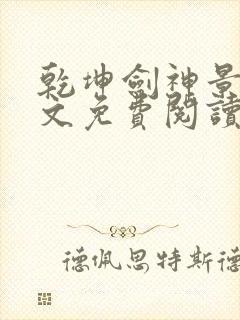 乾坤劍神景
文免費閱讀
德佩思特斯德